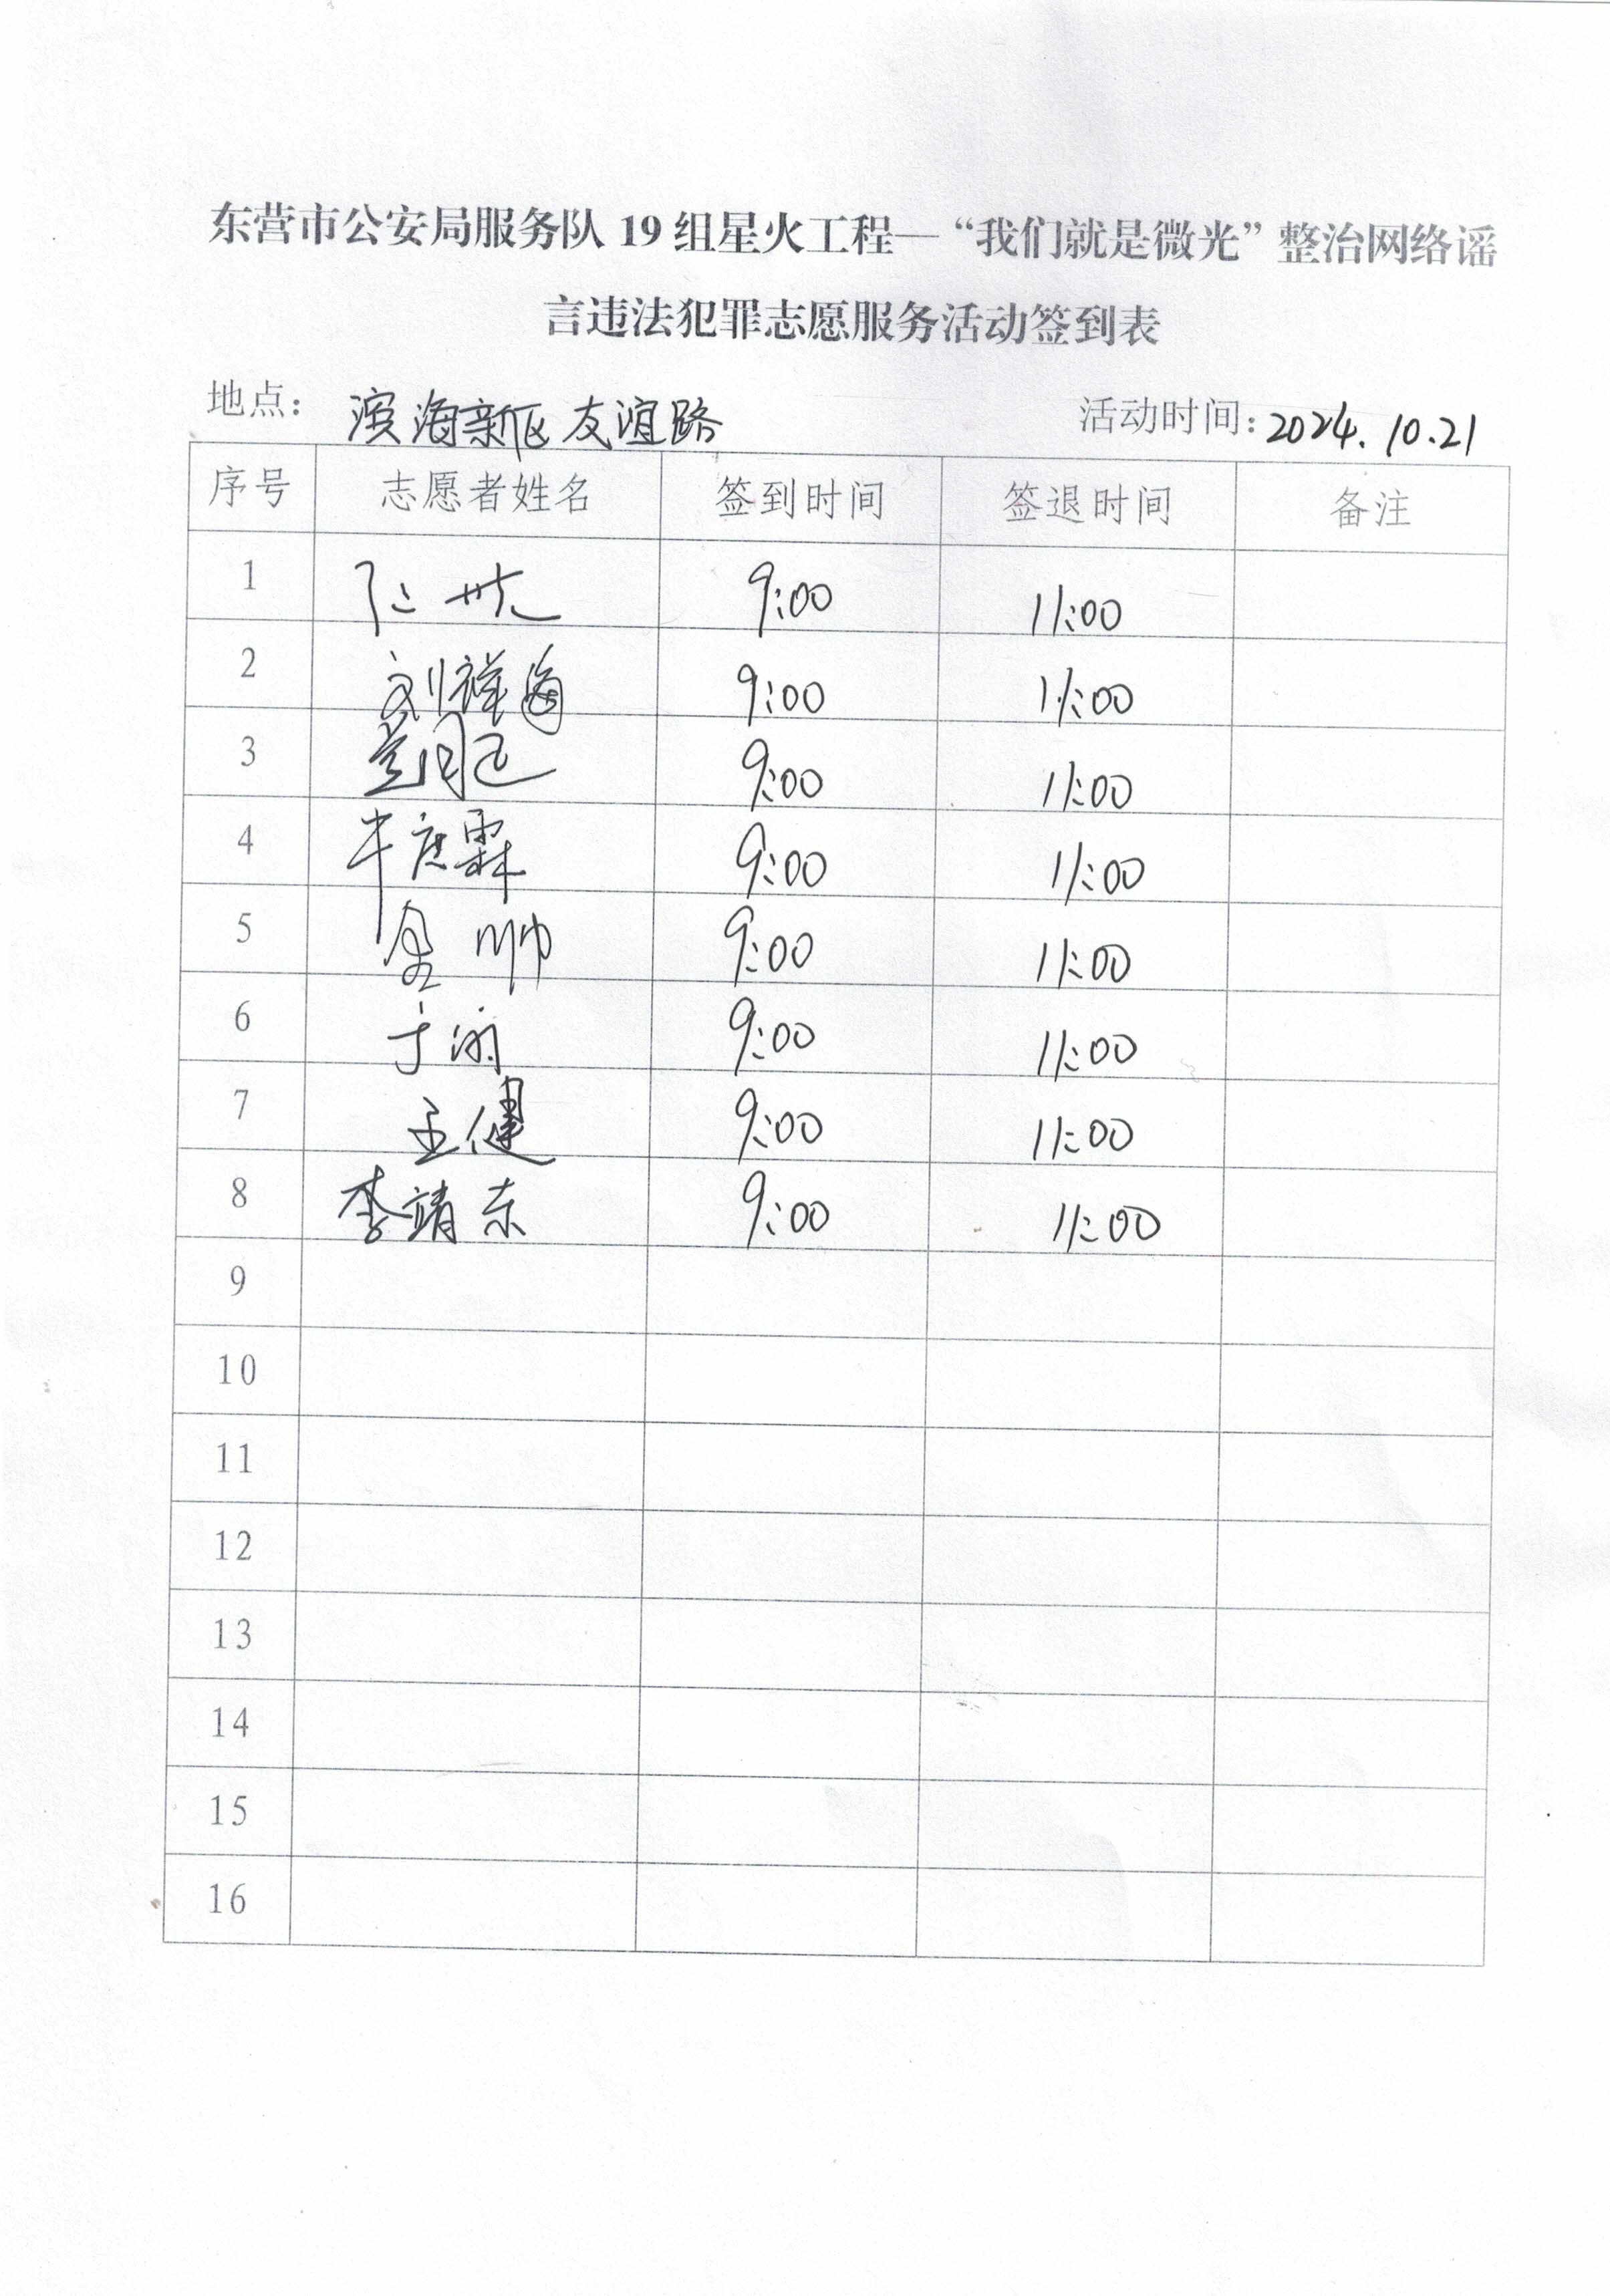 东营市公安局服务队 19 组星火工程—“我们就是微光”整治网络谣
言违法犯罪志愿服务活动签到表
地点： 滨海新区友谊路 活动时间：2024.10.21
序号 志愿者姓名 签到时间 签退时间 备注
1 9:00 11:00
2 刘祥海 9:00 11:00
3 9:00 11:00
4 9:00 11:00
5 帅 9:00 11:00
6 于 9:00 11:00
7 王健 9:00 11:00
8 李靖东 9:00 11:00
9
10
11
12
13
14
15
16